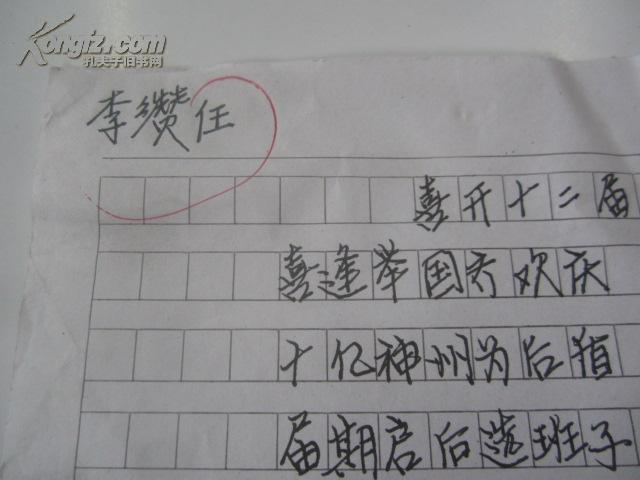 Kongfz.com
孔夫子旧书网
李缵任
喜开十二届
喜逢举国齐欢庆
十亿神州为后
届期启后选班子